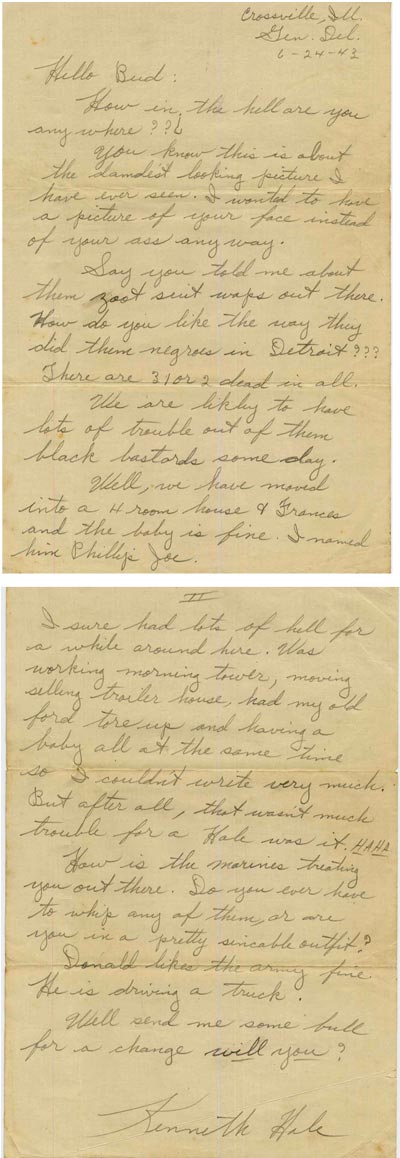 Crossville, Ill.
Gen. Del.
6-24-43
Hello Bud:
How in the hell are you
any where???
You know this is about
the damdest looking picture I
have ever seen. I wanted to have
a picture of your face instead
of your ass any way.
Say you told me about
them zoot suit waps out there.
How do you like the way they
did them negroes in Detroit???
There are 31 or 2 dead in all.
We are likly to have
lots of trouble out of them
black bastards some day.
Well, we have moved
into a 4 room house & Frances
and the baby is fine. I named
him Phillip Joe.
II
I sure had lots of hell for
a while around here. Was
working morning tower, moving
selling trailer house, had my old
ford tore up and having a
baby all at the same time
so I couldn't write very much.
But after all, that wasn't much
trouble for a Hale was it. HAHA
How is the marines treating
you out there. Do you ever have
to whip any of them, or are
you in a pretty sincable outfit?
Donald likes the army fine.
He is driving a truck.
Well send me some bull
for a change will you?
Kenneth Hale